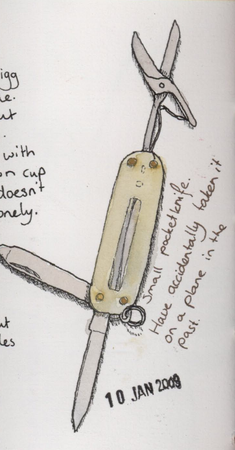 igg
e.
ut
with
on cup
doesn't
onely.
ut
les
Small pocketknife.
Have accidentally taken it
on a plane in the
past.
10 JAN 2009